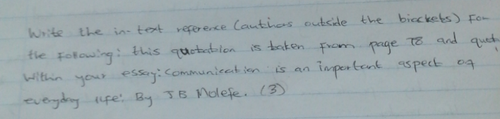 Write the in-text reference (authors outside the brackets) For
the following: this quotation is taken from page 78 and quot
Within your essay: communication is an important aspect of
everyday life: By JB Molefe. (3)